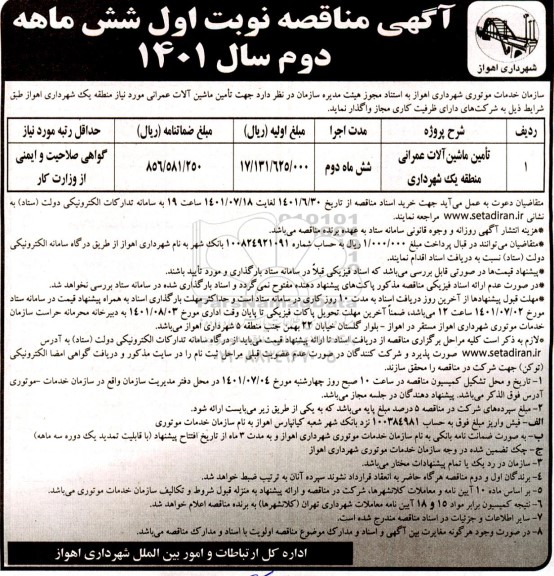 آگهی مناقصه نوبت اول شش ماهه
دوم سال ۱۴۰۱
شهرداری اهواز
سازمان خدمات موتوری شهرداری اهواز به استناد مجوز هیئت مدیره سازمان در نظر دارد جهت تأمین ماشین آلات عمرانی مورد نیاز منطقه یک شهرداری اهواز طبق
شرایط ذیل به شرکت‌های دارای ظرفیت کاری مجاز واگذار نماید.
ردیف شرح پروژه مدت اجرا مبلغ اولیه (ریال) مبلغ ضمانتنامه (ریال) حداقل رتبه مورد نیاز
۱ تأمین ماشین‌آلات عمرانی منطقه یک شهرداری شش ماه دوم ۱۷/۱۳۱/۶۲۵/۰۰۰ ۸۵۶/۵۸۱/۲۵۰ گواهی صلاحیت و ایمنی از وزارت کار
متقاضیان دعوت به عمل می‌آید جهت خرید اسناد مناقصه از تاریخ ۱۴۰۱/۶/۳۰ لغایت ۱۴۰۱/۰۷/۱۸ ساعت ۱۹ به سامانه تدارکات الکترونیکی دولت (ستاد) به
نشانی www.setadiran.ir مراجعه نمایند.
*هزینه انتشار آگهی روزانه و وجوه قانونی سامانه ستاد به عهده برنده مناقصه می‌باشد.
*متقاضیان می‌توانند در قبال پرداخت مبلغ ۱/۰۰۰/۰۰۰ ریال به حساب شماره ۱۰۰۸۲۴۹۲۱۰۹۱ بانک شهر به نام شهرداری اهواز از طریق درگاه سامانه الکترونیکی
دولت (ستاد) نسبت به دریافت اسناد اقدام نمایند.
*پیشنهاد قیمت‌ها در صورتی قابل بررسی می‌باشد که اسناد فیزیکی قبلاً در سامانه ستاد بارگذاری و مورد تأیید باشند.
*در صورت عدم ارائه اسناد فیزیکی مناقصه مذکور پاکت‌های پیشنهاد دهنده مفتوح نمی‌گردد و اسناد بارگذاری شده در سامانه ستاد بررسی نخواهد شد.
*مهلت قبول پیشنهادها از آخرین روز دریافت اسناد به مدت ۱۰ روز کاری در سامانه ستاد است و حداکثر مهلت بارگذاری اسناد به همراه پیشنهاد قیمت در سامانه ستاد
مورخ ۱۴۰۱/۰۷/۰۲ ساعت ۱۲ می‌باشد، ضمناً آخرین مهلت تحویل پاکات فیزیکی تا پایان وقت اداری مورخ ۱۴۰۱/۰۸/۰۳ به دبیرخانه محرمانه حراست سازمان
خدمات موتوری شهرداری اهواز مستقر در اهواز - بلوار گلستان خیابان ۲۲ بهمن جنب منطقه ۵ شهرداری اهواز می‌باشد.
*لازم به ذکر است کلیه مراحل برگزاری مناقصه از دریافت اسناد تا ارائه پیشنهاد قیمت می‌باید از درگاه سامانه تدارکات الکترونیکی دولت (ستاد) به آدرس
www.setadiran.ir صورت پذیرد و شرکت کنندگان در صورت عدم عضویت قبلی مراحل ثبت نام را در سایت مذکور و دریافت گواهی امضا الکترونیکی
(توکن) جهت شرکت در مناقصه را محقق سازند.
۱- تاریخ و محل تشکیل کمیسیون مناقصه در ساعت ۱۰ صبح روز چهارشنبه مورخ ۱۴۰۱/۰۷/۰۴ در محل دفتر مدیریت سازمان واقع در سازمان خدمات -موتوری
آدرس فوق الذکر می‌باشد. پیشنهاد دهندگان در جلسه مجاز می‌باشد.
۲- مبلغ سپرده‌های شرکت در مناقصه ۵ درصد مبلغ پایه می‌باشد که به یکی از طریق زیر می‌بایست ارائه شود.
الف- فیش واریز مبلغ فوق به حساب ۱۰۰۳۸۴۹۸۱ نزد بانک شهر شعبه کیانپارس اهواز به نام سازمان خدمات موتوری
ب- به صورت ضمانت نامه بانکی به نام سازمان خدمات موتوری شهرداری اهواز و به مدت ۳ ماه از تاریخ افتتاح پیشنهاد (با قابلیت تمدید یک دوره سه ماهه)
ج- چک تضمین شده در وجه سازمان خدمات موتوری شهرداری اهواز
۳- سازمان در رد یک یا تمام پیشنهادات مختار می‌باشد.
۴- برندگان اول و دوم مناقصه هرگاه حاضر به انعقاد قرارداد نشوند سپرده آنان به ترتیب ضبط خواهد شد.
۵- بر اساس ماده ۱۰ آیین نامه و معاملات کلانشهرها، شرکت در مناقصه و ارائه پیشنهاد به منزله قبول شروط و تکالیف سازمان خدمات موتوری می‌باشد.
۶- نتیجه کمیسیون برابر مواد ۱۵ و ۱۸ آیین نامه معاملات شهرداری تهران (کلانشهرها) به برنده مناقصه اعلام خواهد شد.
۷- سایر اطلاعات و جزئیات در اسناد مناقصه مندرج شده است.
۸- در صورت وجود هرگونه مغایرت بین آگهی و اسناد و مدارک موضوع مناقصه اولویت با اسناد و مدارک مناقصه می‌باشد.
اداره کل ارتباطات و امور بین الملل شهرداری اهواز